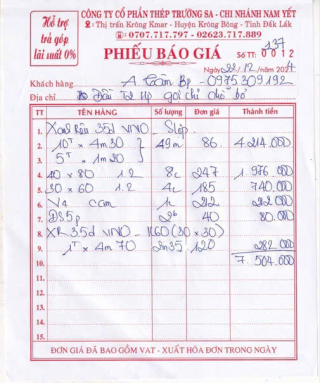 Hỗ trợ
trả góp
lãi suất 0%
CÔNG TY CỔ PHẦN THÉP TRƯỜNG SA - CHI NHÁNH NAM YẾT
Thị trấn Krông Kmar - Huyện Krông Bông - Tỉnh Đắk Lắk
0707.717.797 - 02623.717.889
PHIẾU BÁO GIÁ
137
Số TT 0012
Ngày 22/12/năm 2024
Khách hàng A Cầm Bp - 0975309192
Địa chỉ Đầu T2 Hp gọi chỉ chỗ bỏ
TT TÊN HÀNG Số lượng Đơn giá Thành tiền
1. 35d VINO Slép
2. 10T × 4m30 49m 86 4.214.000
3. 5T × 1m20
4. 40 × 80 1.2 8c 247 1.976.000
5. 30 × 60 1.2 4c 185 740.000
6. V4 cam 1c 212 212.000
7. D85p 2b 40 80.000
8. XR 35d VINO - K60 (30 × 30)
9. 1T × 4m70 2m35 120 282.000
10. 7.504.000
11.
12.
13.
14.
15.
ĐƠN GIÁ ĐÃ BAO GỒM VAT - XUẤT HÓA ĐƠN TRONG NGÀY